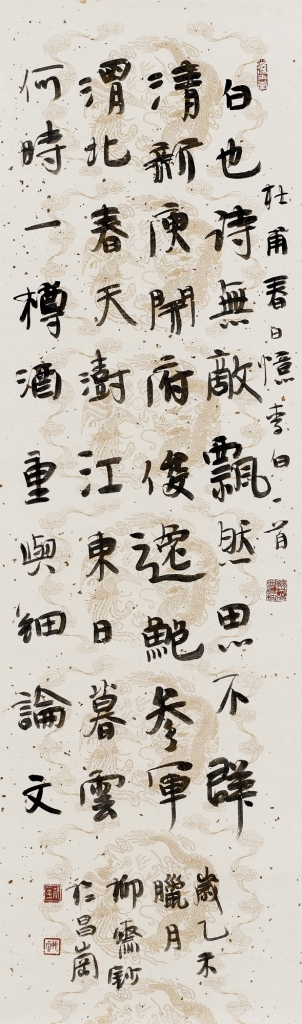 杜甫春日憶李白一首
白也诗無敵飄然思不群
清新庾開府俊逸鮑參軍
渭北春天澍江東日暮雲
何時一樽酒重與細論文
歲乙未
臘月
柳齋鈔
於昌崗